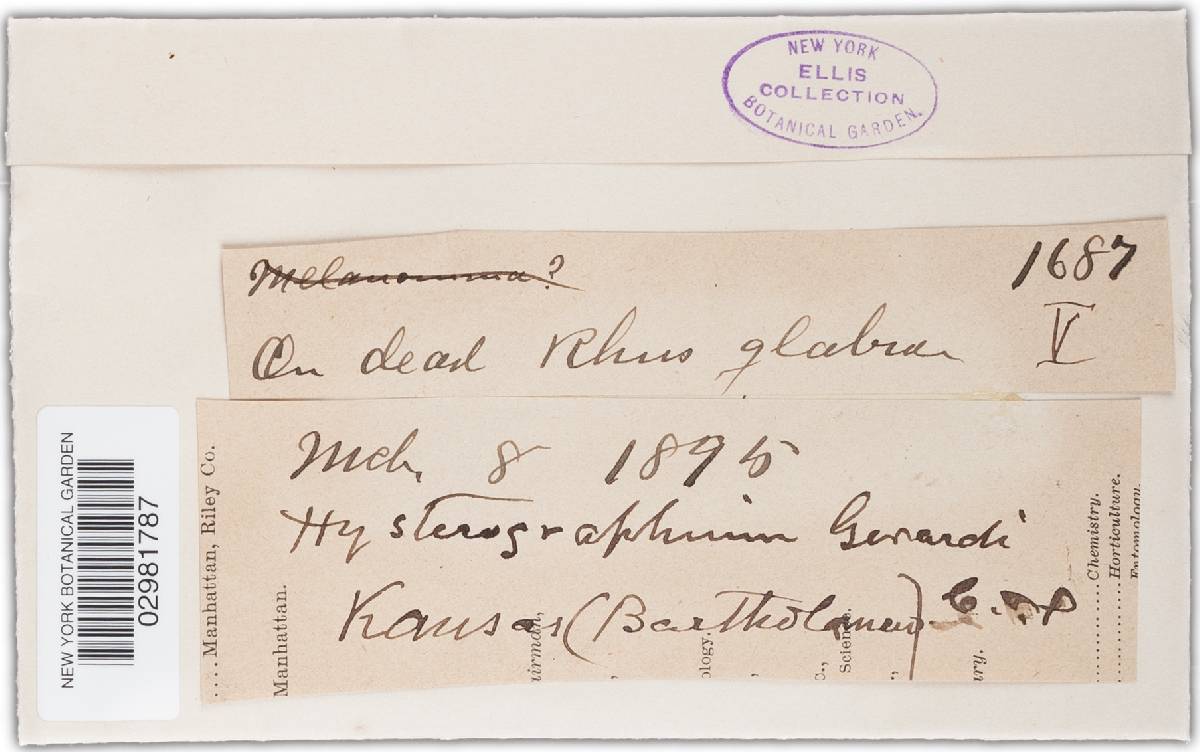 NEW YORK
ELLIS
COLLECTION
BOTANICAL GARDEN.
Melanomma? 1687
On dead Rhus glabra V
Mch, 8 1895
Hysterographium Gerardi
Kansas (Bartholomew)
.... Manhattan, Riley Co.
Manhattan.
airman,
ology.
Science.
ury.
Chemistry.
Horticulture.
Entomology.
NEW YORK BOTANICAL GARDEN
02981787